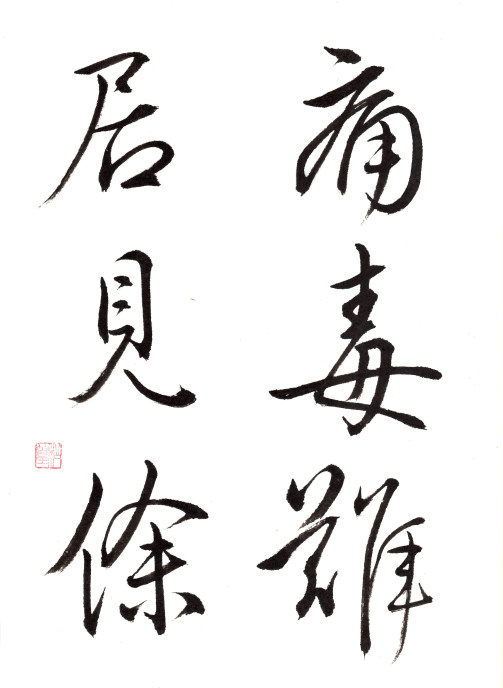 痛毒難
居見條